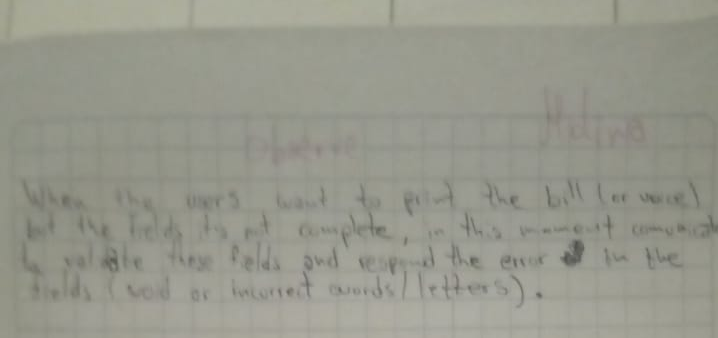 Molina
Observe
When the users want to print the bill (or voice)
but the fields its not complete, in this moment comunicate
to validate these fields and respond the error in the
fields (void or incorrect words/letters).